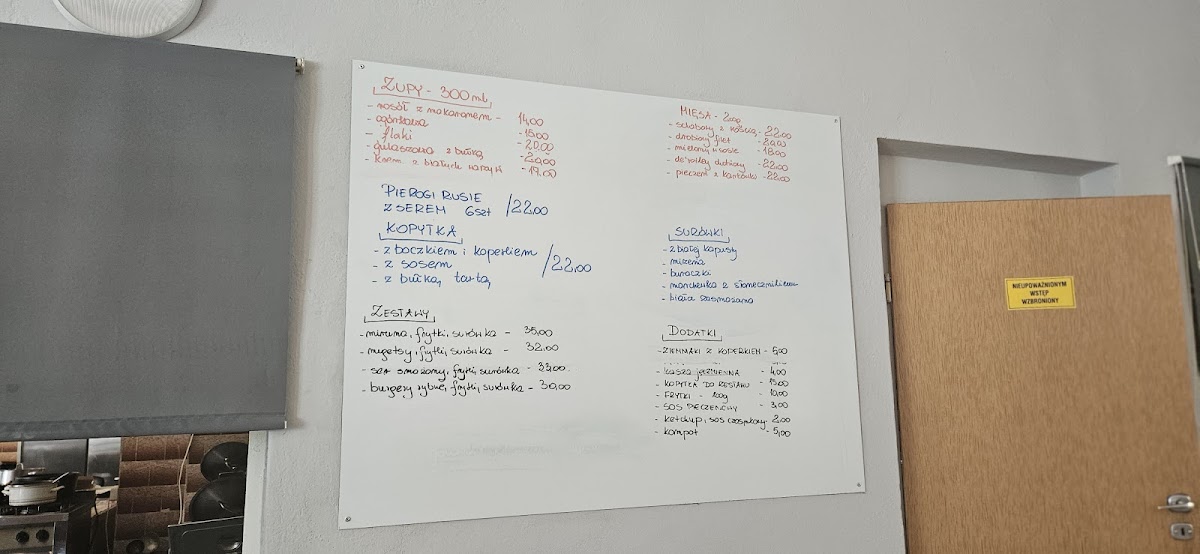 ZUPY - 300ml
- rosół z makaronem - 14,00
- ogórkowa - 15,00
- flaki - 20,00
- gulaszowa z bułką
- krem z białych warzyw - 19,00
PIEROGI RUSIE
Z SEREM 6szt /22,00
KOPYTKA
- z boczkiem i koperkiem
- z sosem /22,00
- z bułką tartą
ZESTAWY
- miruna, frytki, surówka - 35,00
- nugetsy, frytki, surówka - 32,00
- ser smażony, frytki, surówka
- burgery rybne, frytki, surówka - 30,00
MIĘSA -
- schabowy z kością - 22,00
- drobiowy filet
- mielony w sosie - 18,00
- de'volay drobiowy - 22,00
- pieczeń z karkówki - 22,00
SURÓWKI
- z białej kapusty
- mizeria
- buraczki
- marchewka z słonecznikiem
- biała zasmażana
DODATKI
- ZIEMNIAKI Z KOPERKIEM - 5,00
- kasza jęczmienna - 4,00
- KOPYTKA DO - 15,00
- FRYTKI - - 10,00
- SOS PIECZENIOWY - 3,00
- ketchup, sos czosnkowy - 2,00
- kompot - 5,00
NIEUPOWAŻNIONYM
WSTĘP
WZBRONIONY